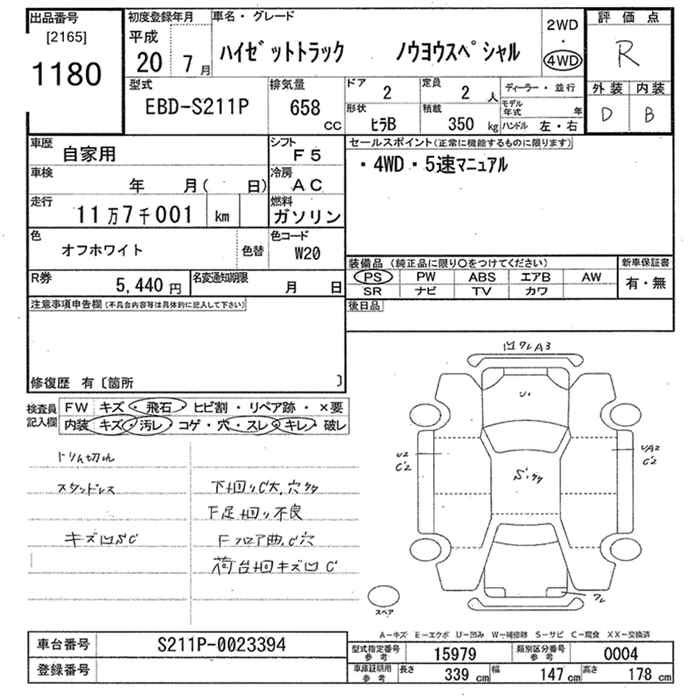 出品番号
[2165]
1180
初度登録年月
平成
20 7月
車名・グレード
ハイゼットトラック ノウヨウスペシャル
2WD
・
4WD
評価点
R
外装 内装
D B
型式
EBD-S211P
排気量
658
cc
ドア
2
定員
2人
形状
ヒラB
積載
350 kg
ディーラー・並行
モデル年式 年
ハンドル 左・右
車歴
自家用
シフト
F5
車検
年 月( 日)
冷房
AC
走行
11万7千001 km
燃料
ガソリン
色
オフホワイト
色替
色コード
W20
R券
5,440円
名変通知期限
月 日
セールスポイント(正常に機能するものに限ります)
・4WD・5速マニュアル
装備品(純正品に限り○をつけてください)
PS PW ABS エアB AW
SR ナビ TV カワ
新車保証書
有・無
後日品
注意事項申告欄(不具合内容等は具体的に記入して下さい)
修復歴 有〔箇所 〕
検査員記入欄
FW キズ・飛石・ヒビ割・リペア跡・×要
内装 キズ・汚レ・コゲ・穴・スレ・キレ・破レ
ドリム切れ
スタッドレス
キズ凹SC
下回りC大、穴
下足回り不良
Fフロア曲、C穴
荷台回キズ凹C
凹ワレA3
U1
U2
C2
UA2
C2
S'
ワレ
スペア
A−キズ E−エクボ U−凹み W−補修跡 S−サビ C−腐食 XX−交換済
車台番号
S211P-0023394
登録番号
型式指定番号
参考
15979
類別区分番号
参考
0004
車庫証明用
参考
長さ 339 cm
幅 147 cm
高さ 178 cm